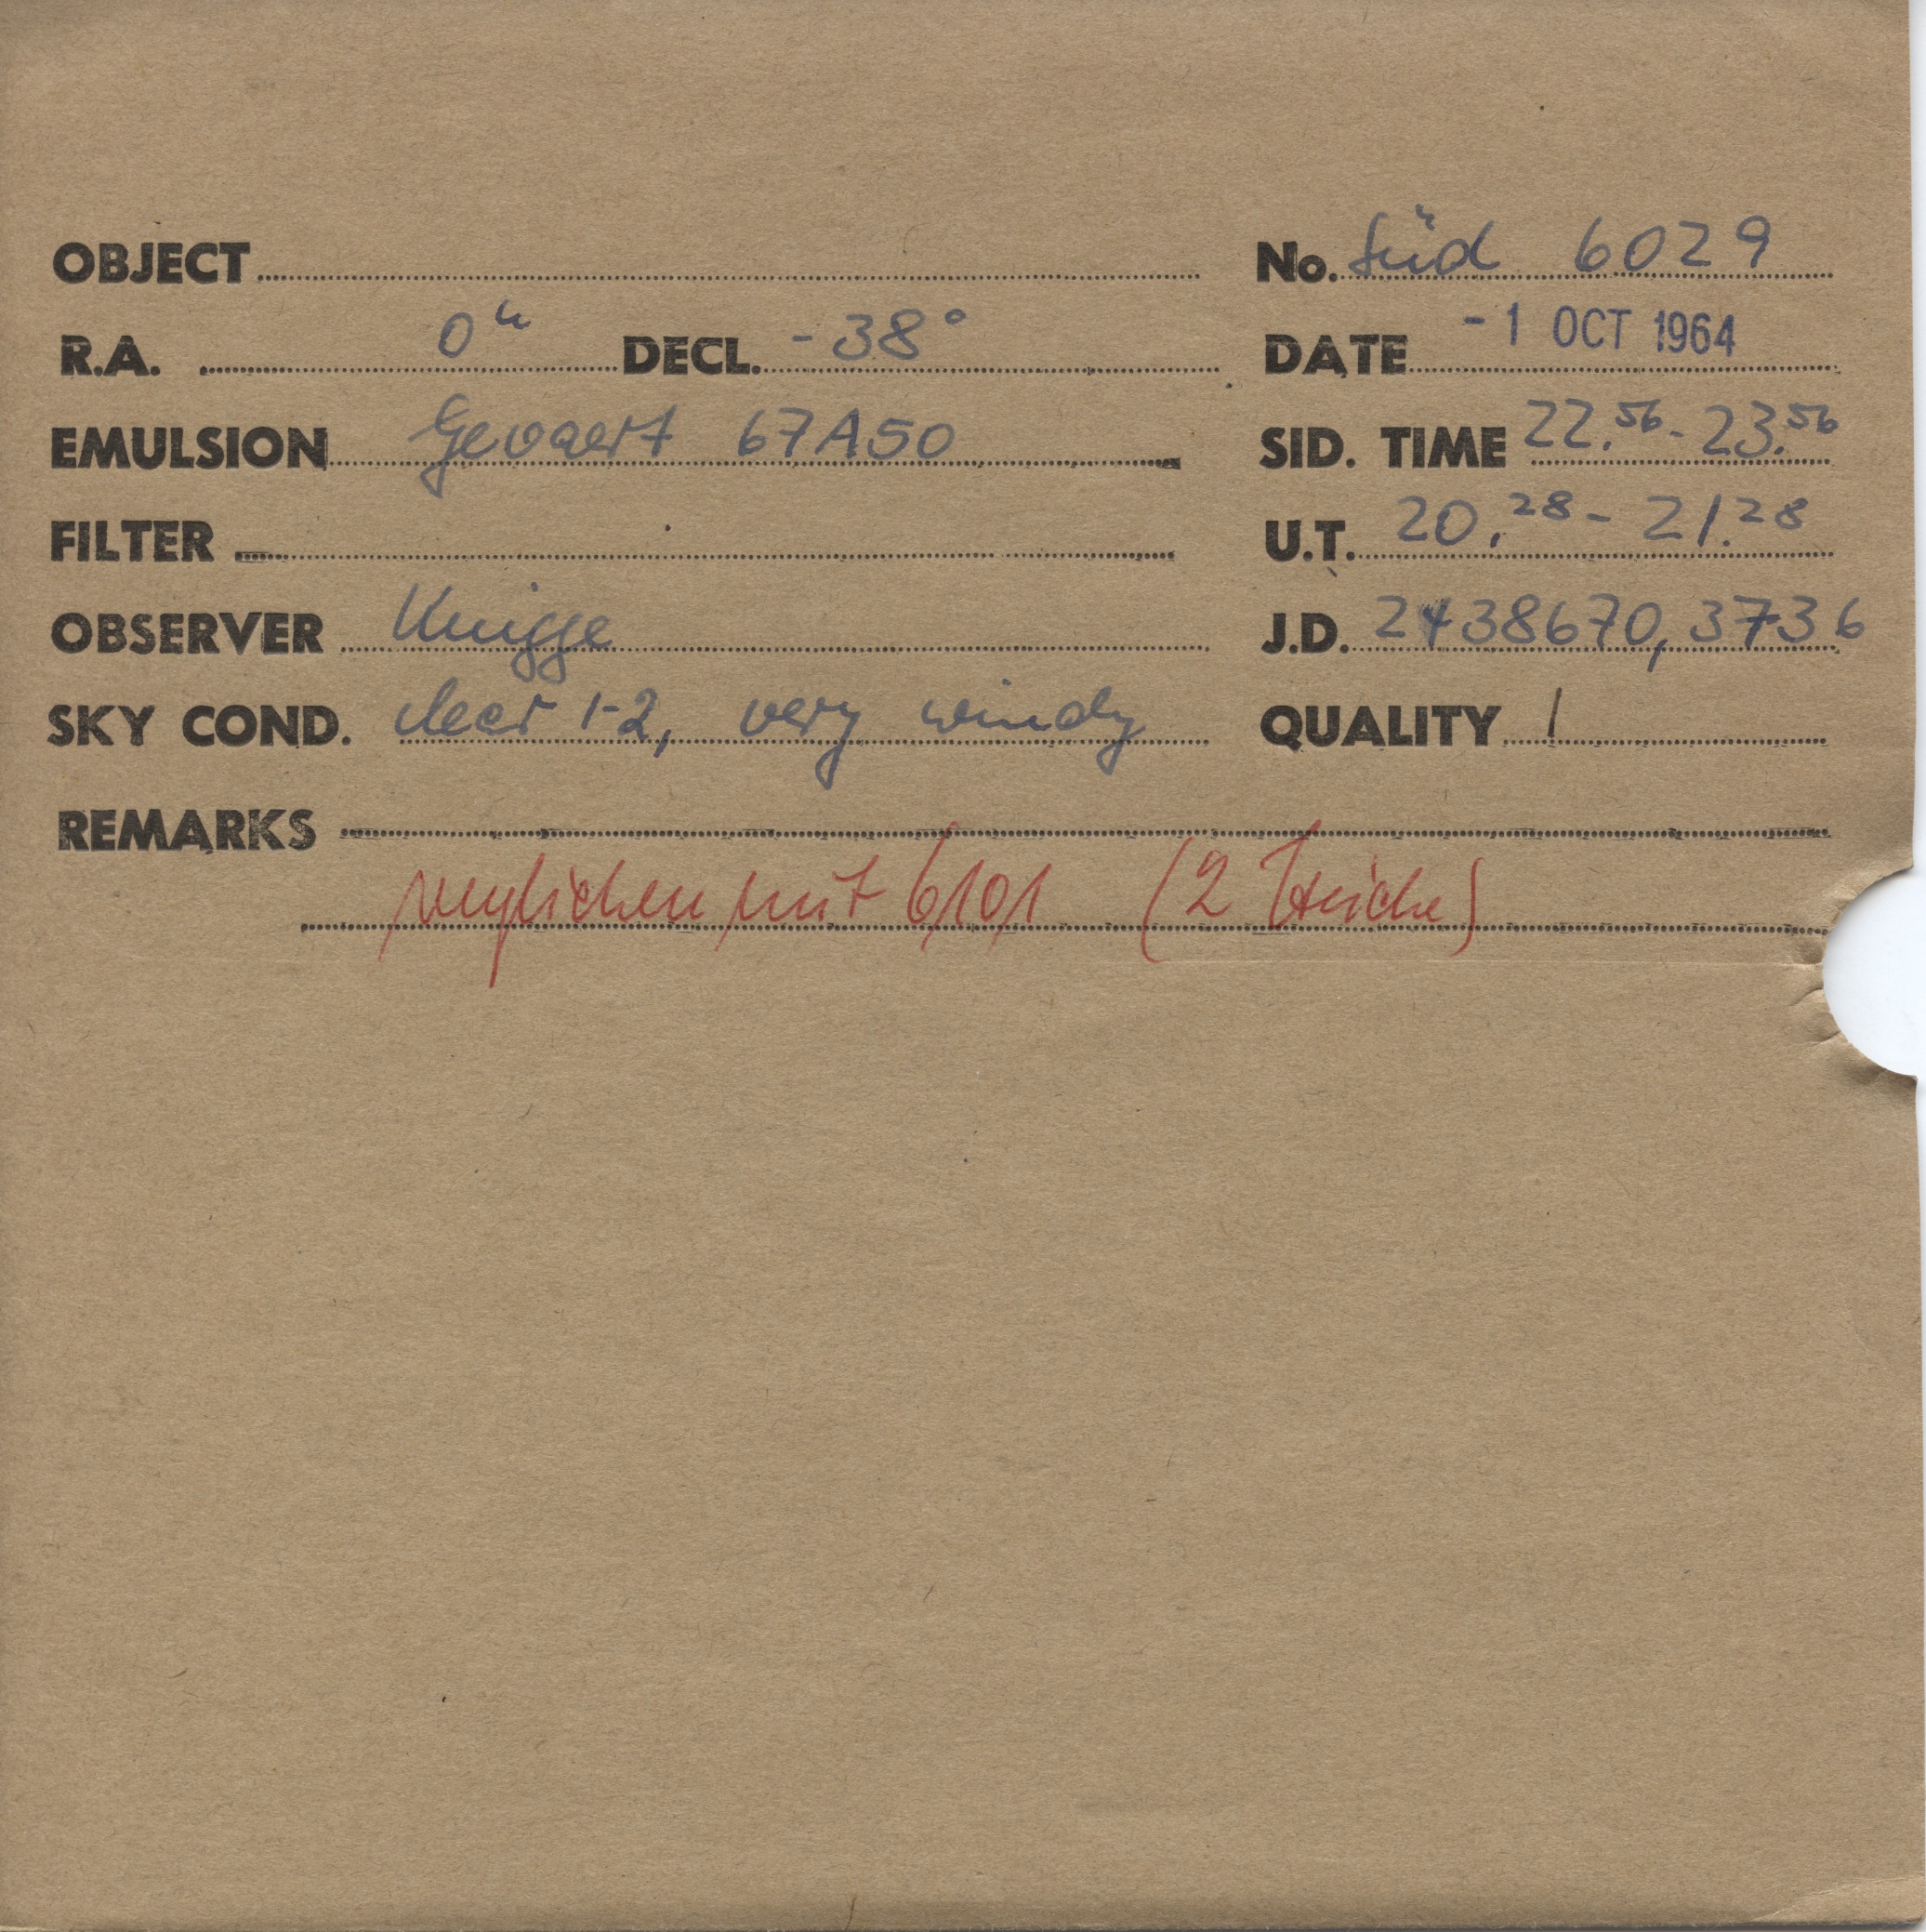 OBJECT No. Süd 6029
R.A. 0h DECL. -38° DATE -1 OCT 1964
EMULSION Gevaert 67A50 SID. TIME 22.56 - 23.56
FILTER U.T. 20.28 - 21.28
OBSERVER Knigge J.D. 2438670,3736
SKY COND. clear 1-2, very windy QUALITY 1
REMARKS
verglichen mit 6101 (2